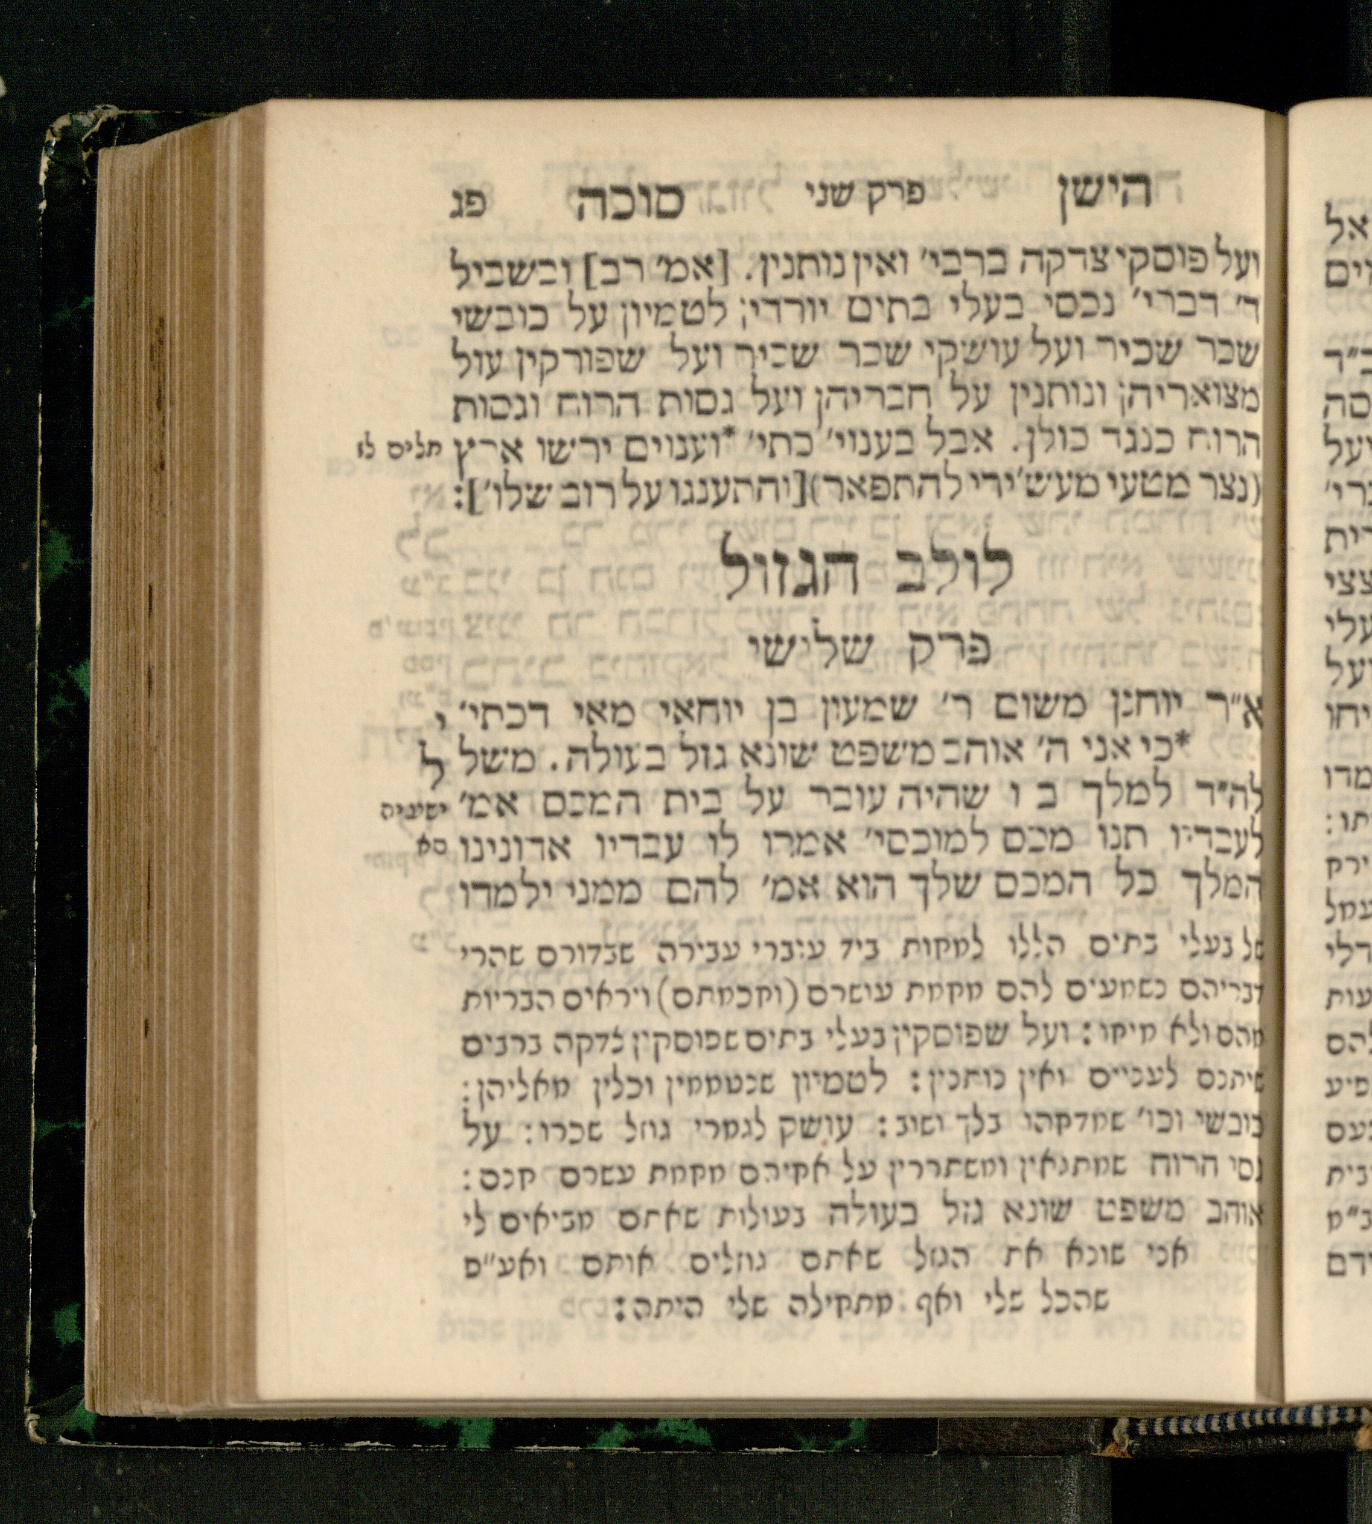 הישן פרק שני סוכה פג
ועל פוסקי צדקה ברבי׳ ואין נותנין. [אמ׳ רב] ובשביל
ד׳ דברי׳ נכסי בעלי בתים יורדין לטמיון על כובשי
שכר שכיר ועל עושקי שכר שכיר ועל שפורקין עול
מצואריהן ונותנין על חבריהן ועל גסות הרוח וגסות
הרוח כנגד כולן. אבל בענוי׳ כתי׳ *וענוים ירשו ארץ תלים לז
(נצר מטעי מעשׂ׳ידי להתפאר)[והתענגו על רוב שלו׳]:
לולב הגזול
פרק שלישי
א״ר יוחנן משום ר׳ שמעון בן יוחאי מאי דכתי׳ י
*כי אני ה׳ אוהב משפט שונא גזל בעולה. משל ל
לה״ד למלך ב ו שהיה עובר על בית המכס אמ׳ ישעיה
לעבדיו תנו מכס למוכסי׳ אמרו לו עבדיו אדונינו סא
המלך כל המכס שלך הוא אמ׳ להם ממני ילמדו
של בעלי בתים הללו למקות ביד עוברי עבירה שבדורם שהרי
דבריהם נשמעים להם מחמת עושרם (וחכמתם) ויראים הבריות
מהם ולא מיחו: ועל שפוסקין בעלי בתים שפוסקין צדקה ברבים
שיתנם לעניים ואין נותנין: לטמיון שנטממין וכלין מאליהן:
כובשי וכו׳ שמדחהו בלך ושוב: עושק לגמרי גוזל שכרו: על
גסי הרוח שמתגאין ומשתררין על אחיהם מחמת עשרם חנם:
אוהב משפט שונא גזל בעולה בעולות שאתם מביאים לי
אני שונא את הגזל שאתם גוזלים אותם ואע״פ
שהכל שלי ואף מתחילה שלי היתה: